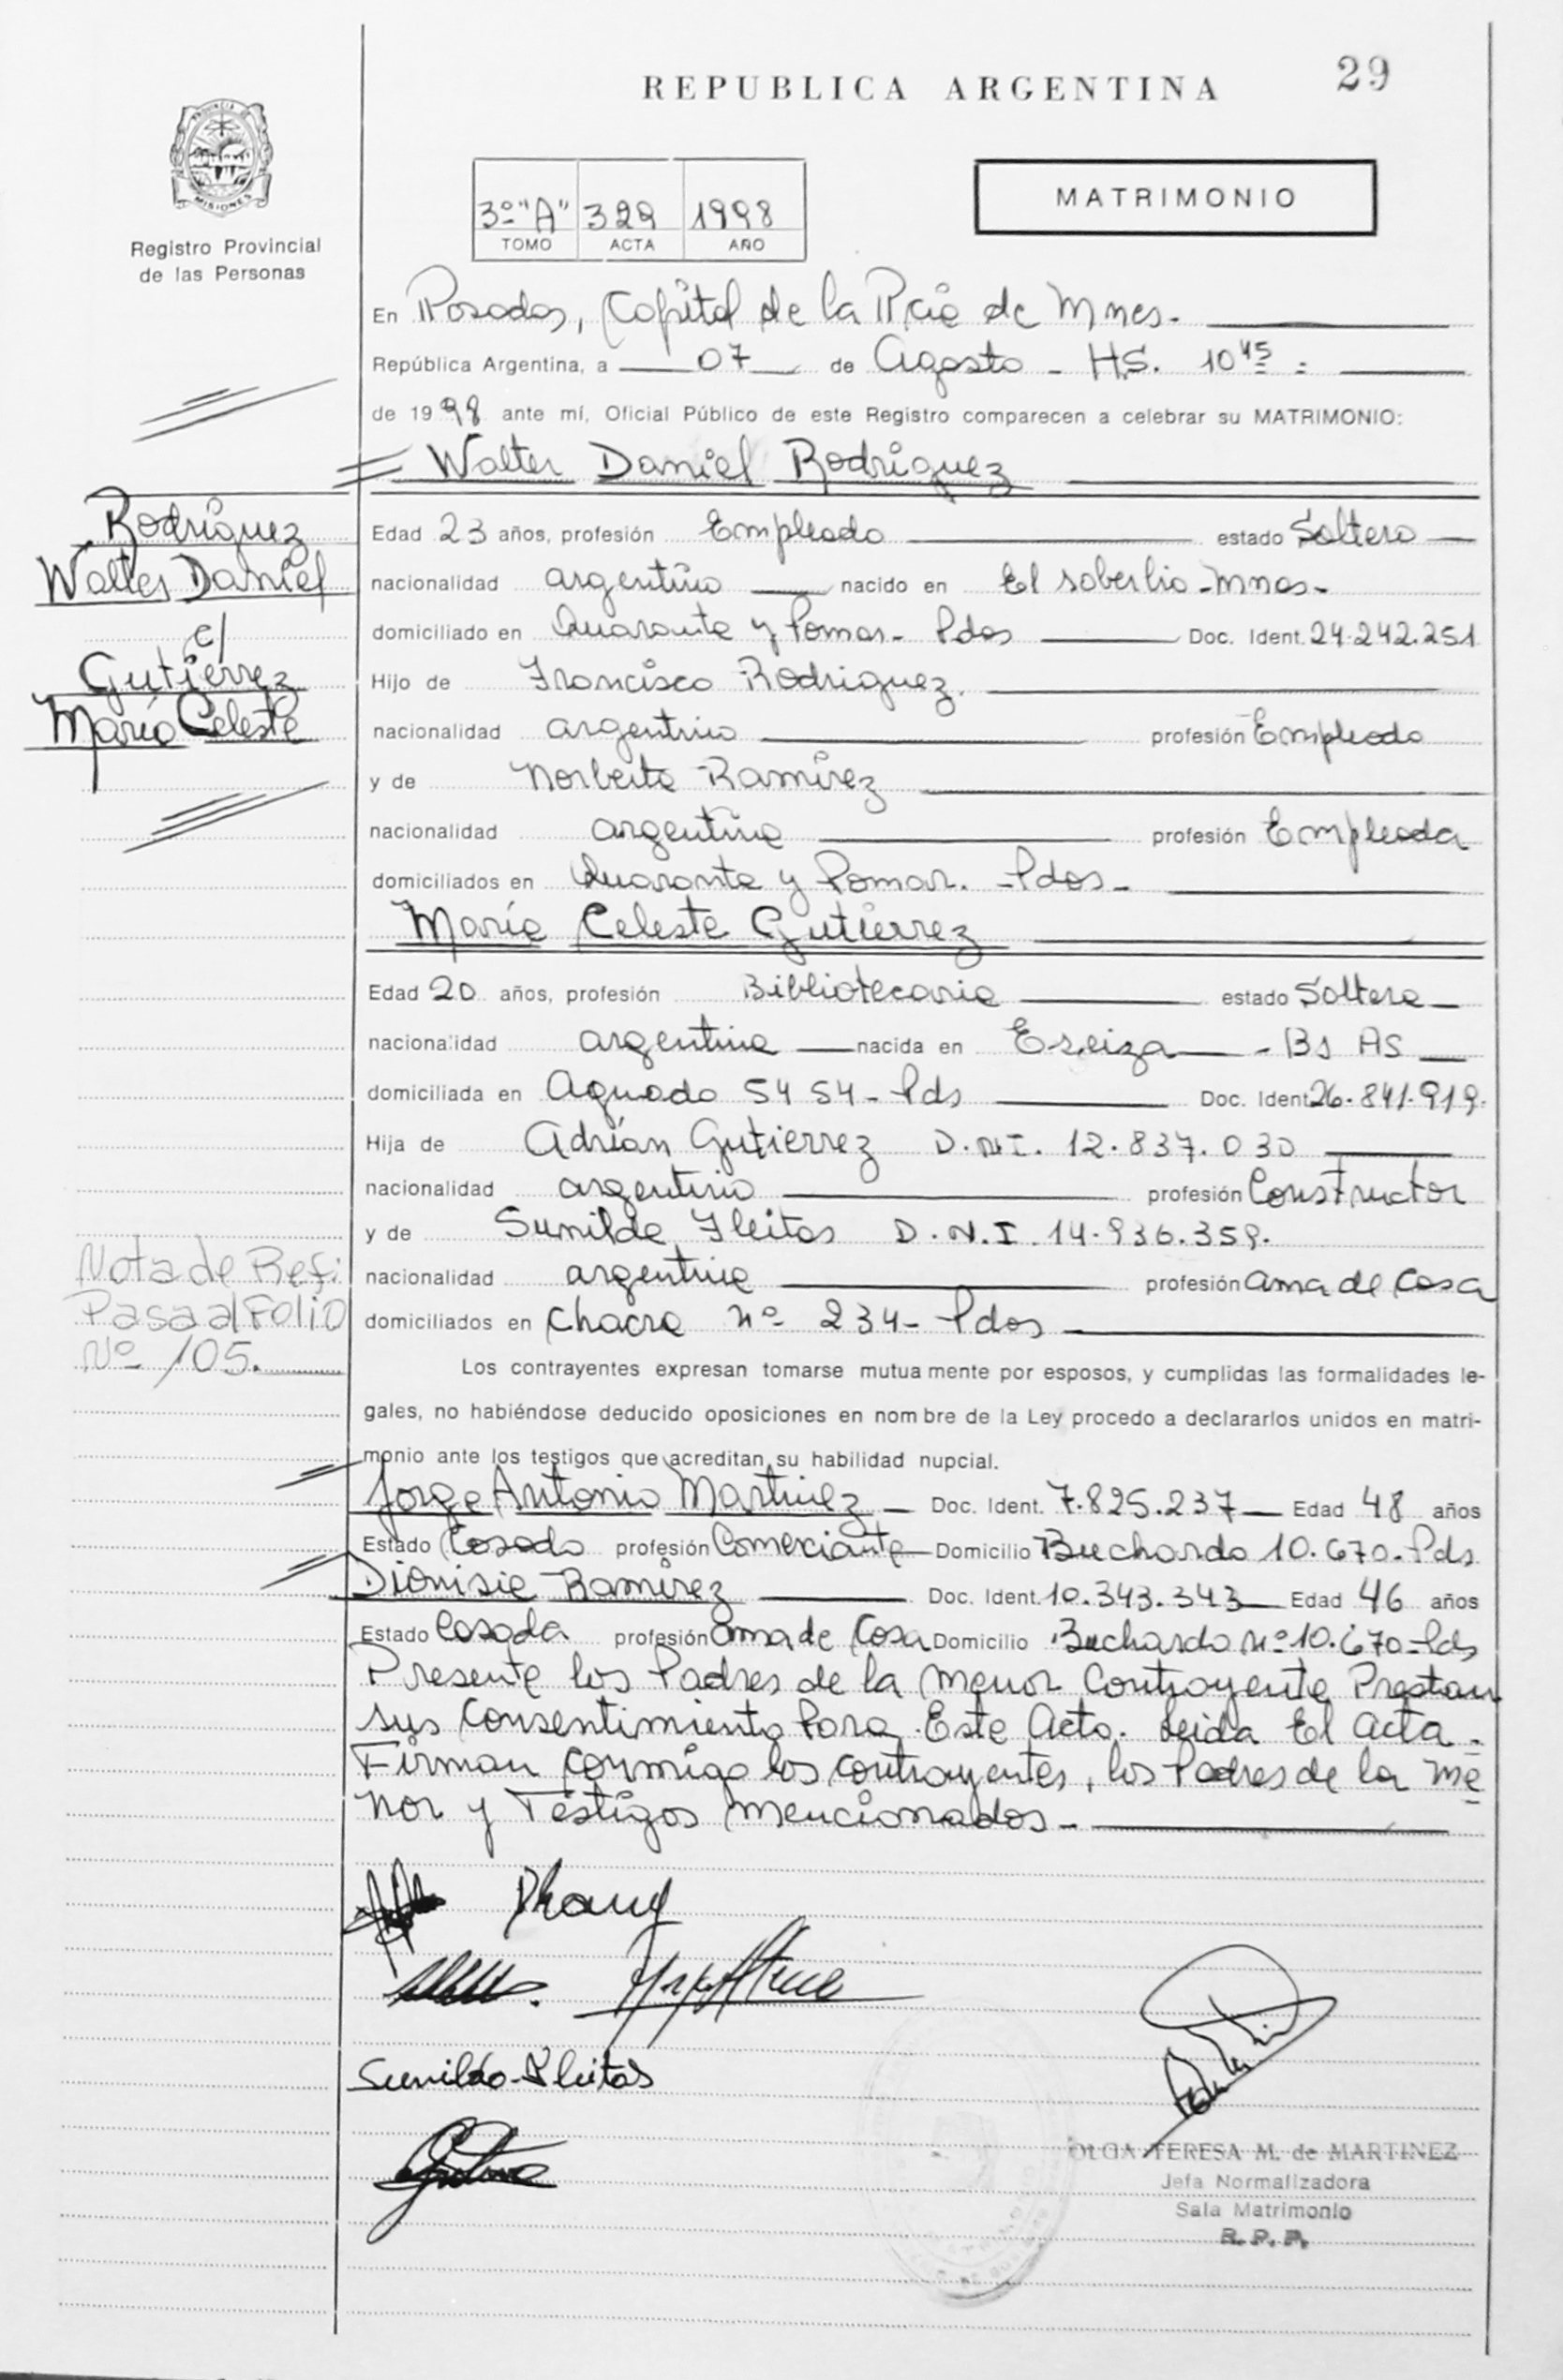 REPUBLICA ARGENTINA
29
PROVINCIA DE
MISIONES
Registro Provincial
de las Personas
3º "A" 329 1998
TOMO ACTA AÑO
MATRIMONIO
En Posadas, Capital de la Pcia de Mnes.
República Argentina, a 07 de Agosto - HS. 10 45
de 1998 ante mí, Oficial Público de este Registro comparecen a celebrar su MATRIMONIO:
Walter Daniel Rodríguez
Rodríguez
Walter Daniel
c/
Gutiérrez
María Celeste
Edad 23 años, profesión Empleado estado Soltero
nacionalidad argentino nacido en El soberbio - Mnes -
domiciliado en y Pomar - Pdas Doc. Ident. 24.242.251
Hijo de Francisco Rodriguez.
nacionalidad argentino profesión Empleado
y de Norberta Ramírez
nacionalidad argentina profesión Empleada
domiciliados en y Pomar. - Pdas -
María Celeste Gutiérrez
Edad 20 años, profesión Bibliotecaria estado Soltera
nacionalidad argentina nacida en Ezeiza - Bs AS
domiciliada en Aguado 5454 - Pds Doc. Ident 26.841.919.
Hija de Adrián Gutierrez D.N.I. 12.837.030
nacionalidad argentino profesión Constructor
y de Sunilda Fleitas D.N.I. 14.936.359.
nacionalidad argentina profesión ama de Casa
domiciliados en Chacra nº 234 - Pdas
Nota de Ref:
Pasa al Folio
Nº 105.
Los contrayentes expresan tomarse mutuamente por esposos, y cumplidas las formalidades le-
gales, no habiéndose deducido oposiciones en nombre de la Ley procedo a declararlos unidos en matri-
monio ante los testigos que acreditan su habilidad nupcial.
Jorge Antonio Martinez - Doc. Ident. 7.825.237 Edad 48 años
Estado Casado profesión Comerciante Domicilio Buchardo 10.670 - Pds
Dionisia Ramírez Doc. Ident. 10.343.343 Edad 46 años
Estado Casada profesión Ama de Casa Domicilio Buchardo nº 10.670 - Pds
Presente los Padres de la Menor Contrayente Prestan
sus Consentimiento Para Este Acto. Leida El acta -
Firman conmigo los contrayentes, los Padres de la Me
nor y Testigos mencionados -
Sunilda Fleitas
OLGA TERESA M. de MARTINEZ
Jefa Normalizadora
Sala Matrimonio
R. P. P.